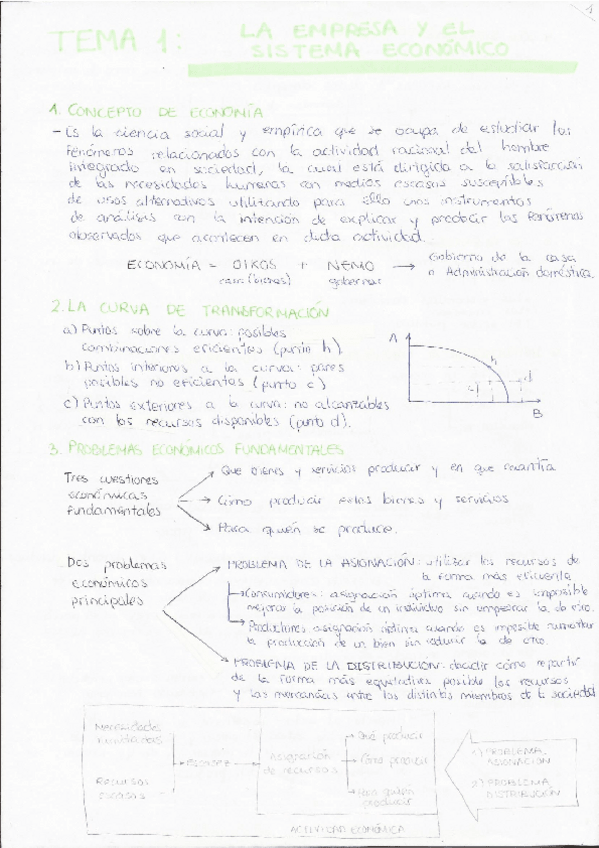 1
TEMA 1: LA EMPRESA Y EL
SISTEMA ECONÓMICO
1. CONCEPTO DE ECONOMÍA
- Es la ciencia social y empírica que se ocupa de estudiar los
fenómenos relacionados con la actividad racional del hombre
integrado en sociedad, la cual está dirigida a la satisfacción
de las necesidades humanas con medios escasos susceptibles
de usos alternativos utilizando para ello unos instrumentos
de análisis con la intención de explicar y predecir los fenómenos
observados que acontecen en dicha actividad.
ECONOMÍA = OIKOS + NEMO → Gobierno de la casa
casa (bienes) gobernar o Administración doméstica.
2. LA CURVA DE TRANSFORMACIÓN
a) Puntos sobre la curva: posibles
combinaciones eficientes (punto h).
b) Puntos interiores a la curva: pares
posibles no eficientes (punto c)
c) Puntos exteriores a la curva: no alcanzables
con los recursos disponibles (punto d).
A
h
c d
B
3. PROBLEMAS ECONÓMICOS FUNDAMENTALES
Tres cuestiones
económicas
fundamentales
Que bienes y servicios producir y en que cuantía
Cómo producir estos bienes y servicios
Para quién se produce.
Dos problemas
económicos
principales
PROBLEMA DE LA ASIGNACIÓN: utilizar los recursos de
la forma más eficiente
Consumidores: asignación óptima cuando es imposible
mejorar la posición de un individuo sin empeorar la de otro.
Productores asignación óptima cuando es imposible aumentar
la producción de un bien sin reducir la de otro.
PROBLEMA DE LA DISTRIBUCIÓN: decidir cómo repartir
de la forma más equitativa posible los recursos
y las mercancías entre los distintos miembros de la sociedad
Necesidades
humanas
Recursos
escasos
Escasez
Asignación
de recursos
Qué producir
Cómo producir
Para quién
producir
ACTIVIDAD ECONÓMICA
1) PROBLEMA
ASIGNACIÓN
2) PROBLEMA
DISTRIBUCIÓN